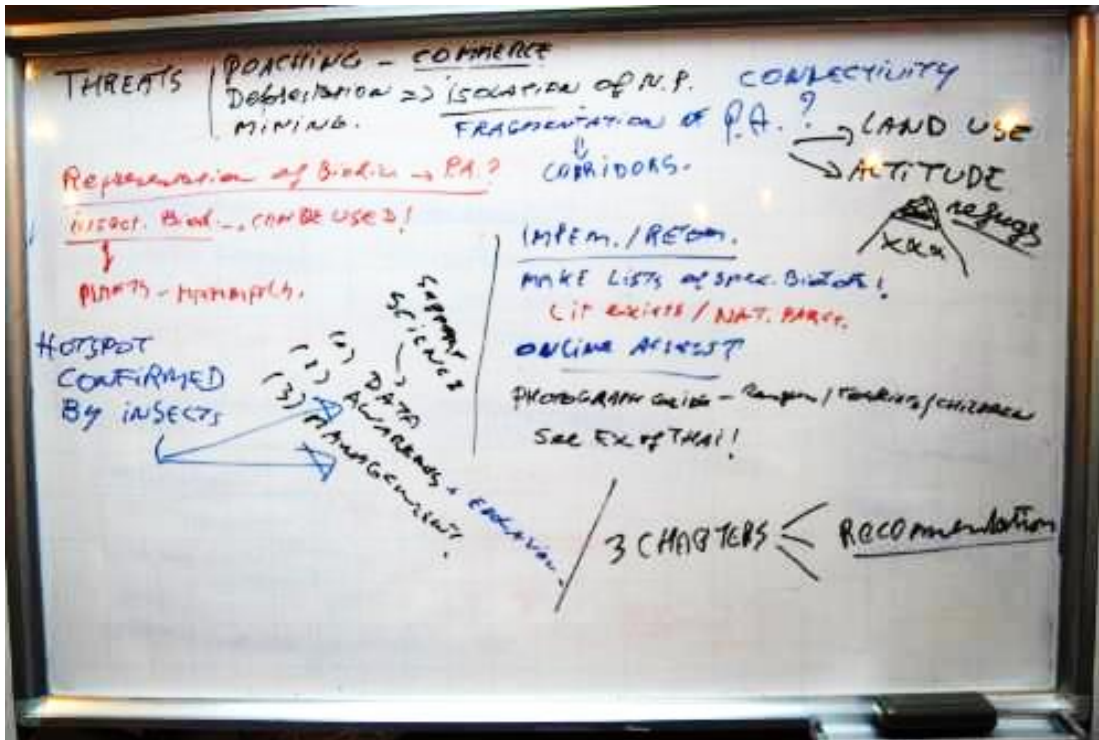 THREATS
POACHING - COMMERCE
Deforestation => isolation of N.P.
MINING.
CONNECTIVITY
FRAGMENTATION OF P.A. ?
CORRIDORS.
→ LAND USE
→ ALTITUDE
refuge
xxx
Representation of Biodiv → P.A.?
insect. Biod → CAN BE USED!
PLANTS - MAMMALS.
HOTSPOT
CONFIRMED
By iNSECTS
SUPPORT
SCIENCE
(1) DATA
(2) AWARENESS + EDUCATION.
(3) MANAGEMENT!
IMPEM. / RECOM.
MAKE LiSTS of spec.
Lit exists / NAT. PARKS.
ONLINE
PHOTOGRAPH GUIDE - Rangers / TOURISTS / CHILDREN
See Ex of THAI!
3 CHAPTERS
RECOMMENDATION